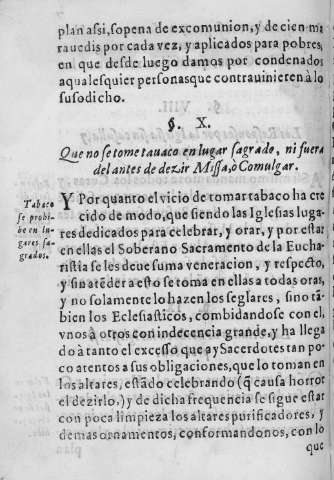 plan assi, sopena de excomunion, y de cien ma
rauedis por cada vez, y aplicados para pobres,
en que desde luego damos por condenados
aqualesquier personasque contrauinieren à lo
susodicho.
§. X.
Que no se tome tauaco en lugar sagrado, ni fuera
del antes de dezir Missa, ò Comulgar.
Tabaco
se prohi-
be en lu-
gares sa-
grados.
Y Por quanto el vicio de tomar tabaco ha cre
cido de modo, que siendo las Iglesias luga-
res dedicados para celebrar, y orar, y por estar
en ellas el Soberano Sacramento de la Eucha-
ristia se les deue suma veneracion, y respecto,
y sin atēder a esto se toma en ellas a todas oras,
y no solamente lo hazen los seglares, sino tā-
bien los Eclesiasticos, combidandose con el,
vnos à otros con indecencia grande, y ha llega
do à tanto el excesso que ay Sacerdotes tan po-
co atentos a sus obligaciones, que lo toman en
los altares, estādo celebrando (q̄ causa horror
el dezirlo,) y de dicha frequencia se sigue estar
con poca limpieza los altares purificadores, y
demas ornamentos, conformandonos, con lo
que